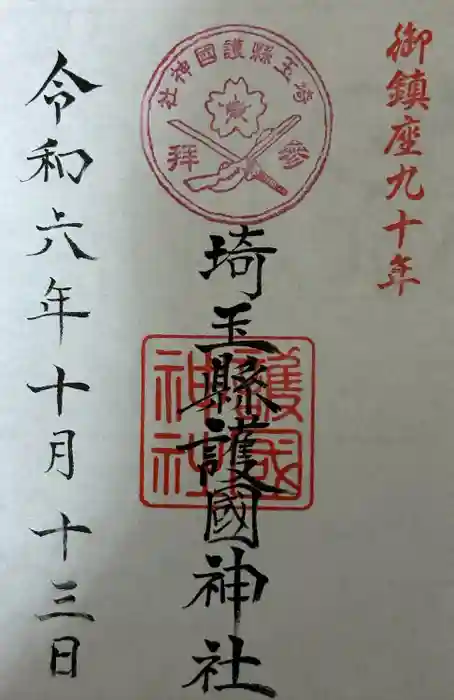 御鎮座九十年
埼玉縣護國神社
参拜
埼玉縣護國神社
護國
神社
令和六年十月十三日